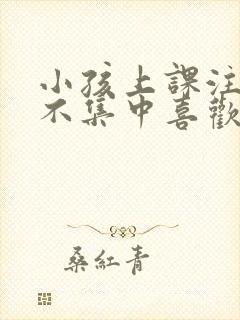 小孩上課注
不集中喜歡
桑紅青